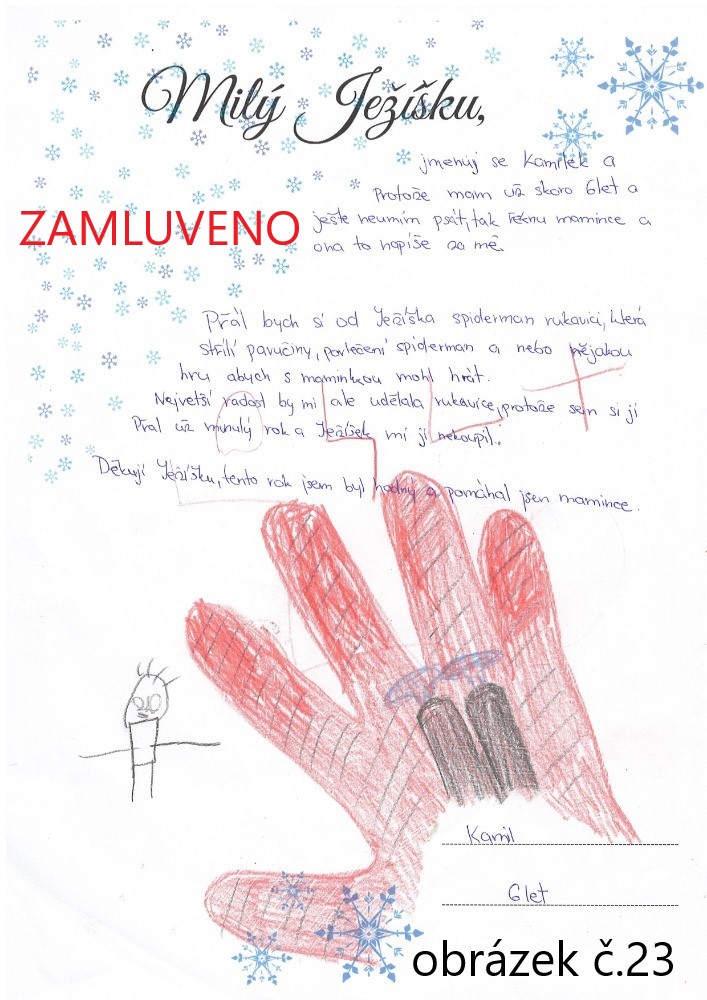 Milý Ježíšku,
jmenuj se Kamílek a
Protože mam už skoro 6let a
ZAMLUVENO
ješte neumím psát, tak řeknu mamince a
ona to napíše za mě.
Přál bych si od Ježíška spiderman rukavici, která
střílí pavučiny, povlečení spiderman a nebo nějakou
hru abych s maminkou mohl hrát.
Největší radost by mi ale udělala rukavice, protože sem si jí
Přal už minulý rok a Ježíšek mi jí nekoupil.
Děkuji Ježíšku, tento rok jsem byl hodný a pomáhal jsen mamince.
Kamil
6let
obrázek č.23